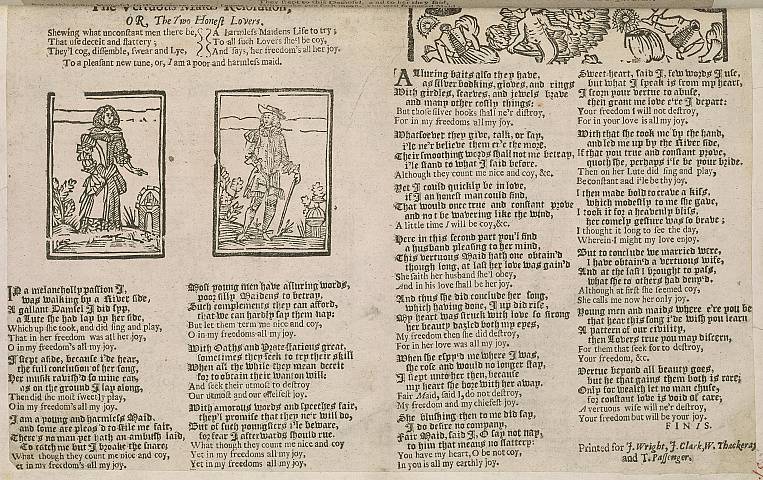 The Vertuous Maids Resolution;
OR, The Two Honest Lovers.
Shewing what unconstant men there be,
That use deceit and flattery;
They'l cog, dissemble, swear and Lye,
A harmless Maidens Life to try;
To all such Lovers she'l be coy,
And says, her freedom's all her joy.
To a pleasant new tune, or, I am a poor and harmless maid.
In a melancholly passion I,
was walking by a River side,
A gallant Damsel I did spy,
a Lute she had lay by her side,
Which up she took, and did sing and play,
That in her freedom was all her joy,
O in my freedoms all my joy.
I stept aside, because i'de hear,
the full conclusion of her song,
Her musick ravish'd so mine ear,
as on the ground I lay along,
Then did she most sweetly play,
O in my freedom's all my joy.
I am a young and harmless Maid,
and some are pleas'd to stile me fair,
There's no man yet hath an ambush laid,
To catch me but I broake the snare,
What though they count me nice and coy,
yet in my freedom's all my joy.
Most young men have alluring words,
poor silly Maidens to betray,
Such complements they can afford,
that we can hardly say them nay:
But let them term me nice and coy,
O in my freedoms all my joy.
With Oaths and Protestations great,
sometimes they seek to try their skill
When all the while they mean deceit
for to obtain their wanton will:
And seek their utmost to destroy
Our utmost and our chiefest joy.
With amorous words and speeches fair,
they'l promise that they ne'r will do,
But of such youngsters i'le beware,
for fear I afterwards should rue.
What though they count me nice and coy
Yet in my freedoms all my joy,
Yet in my freedoms all my joy,
Alluring baits also they have,
as silver bodkins, gloves, and rings
With girdles, scarves, and jewels brave
and many other costly things:
But those silver hooks shall ne'r destroy,
For in my freedoms all my joy.
Whatsoever they give, talk, or say,
i'le ne'r believe them e're the more,
Their smoothing words shall not me betray,
i'le stand to what I said before.
Although they count me nice and coy, &c.
Yet I could quickly be in love,
if I an honest man could find,
That would once true and constant prove
and not be wavering like the wind,
A little time I will be coy, &c.
Here in this second part you'l find
a husband pleasing to her mind,
This vertuous Maid hath one obtain'd
though long, at last her love was gain'd
She saith her husband she'l obey,
And in his love shall be her joy.
And thus she did conclude her song,
which having done, I up did rise,
My heart was struck with love so strong
her beauty dazled both my eyes,
My freedom then she did destroy,
For in her love was all my joy.
When she espy'd me where I was,
she rose and would no longer stay,
I stept unto her then, because
my heart she bore with her away.
Fair Maid, said I, do not destroy,
My freedom and my chiefest joy.
She blushing then to me did say,
I do desire no company,
Fair Maid, said I, O say not nay,
to him that means no flattery:
You have my heart, O be not coy,
In you is all my earthly joy.
Sweet-heart, said I, few words I use,
but what I speak is from my heart,
I scorn your vertue to abuse,
then grant me love e're I depart:
Your freedom I will not destroy,
For in your love is all my joy.
With that she took me by the hand,
and led me up by the River side,
If that you true and constant prove,
quoth she, perhaps i'le be your bride.
Then on her Lute did sing and play,
Be constant and i'le be thy joy.
I then made bold to crave a kiss,
which modestly to me she gave,
I took it for a heavenly bliss,
her comely gesture was so brave;
I thought it long to see the day,
Wherein I might my love enjoy.
But to conclude we married were,
I have obtain'd a vertuous wife,
And at the last I brought to pass,
what she to others had deny'd.
Although at first she seemed coy,
She calls me now her only joy.
Young men and maids where e're you be
that hear this song i'de wish you learn
A pattern of our civility,
then Lovers true you may discern,
For them that seek for to destroy,
Your freedom, &c.
Vertue beyond all beauty goes,
but he that gains them both is rare;
Only for wealth let no man chuse,
for constant love is void of care,
A vertuous wife will ne'r destroy,
Your freedom but will be your joy.
FINIS.
Printed for J. Wright, J. Clark, W. Thackeray
and T. Passenger.